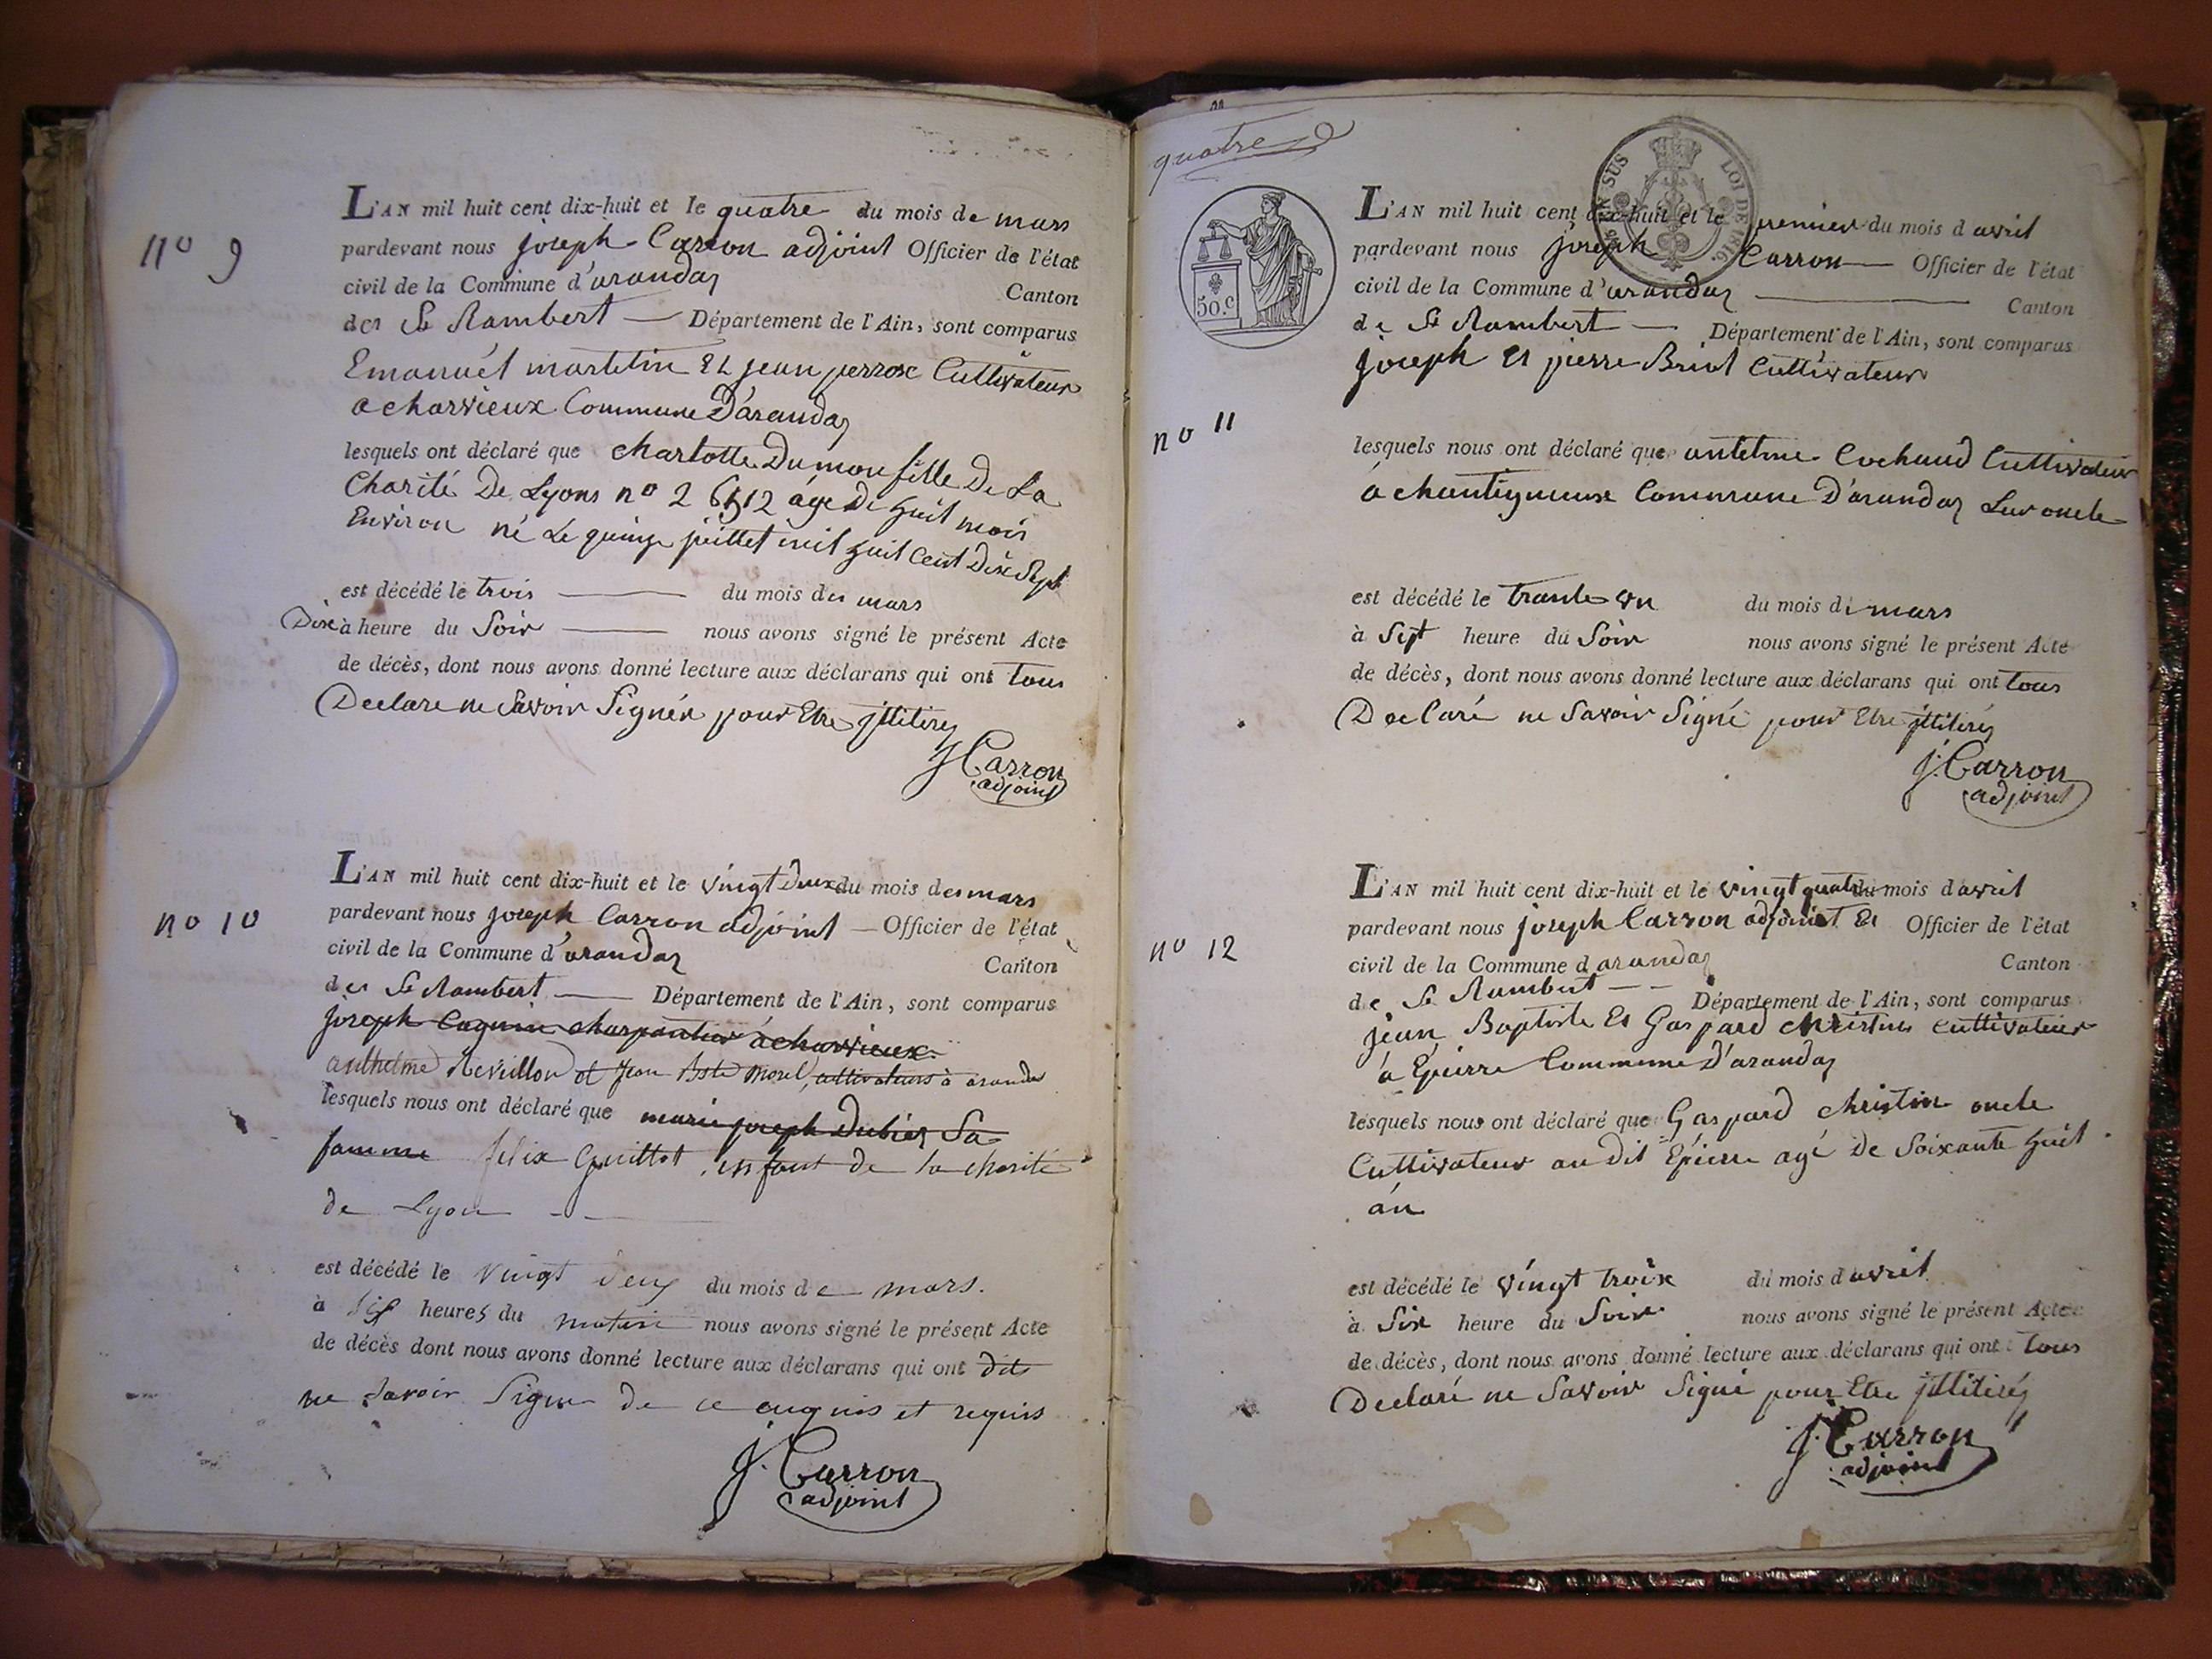 n° 9
L'AN mil huit cent dix-huit et le quatre du mois de mars
pardevant nous joseph Carron adjoint Officier de l'état
civil de la Commune d'arandaz Canton
de St Rambert Département de l'Ain, sont comparus
Emanuël martelin Et jean perrox Cultivateur
a charvieux Commune D'arandaz
lesquels ont déclaré que charlotte Dumon fille De La
Charité De Lyons n° 2 6512 áge De huit mois
Environ né Le quinze juillet mil huit Cent Dix Sept
est décédé le trois du mois de mars
Dix à heure du Soir nous avons signé le présent Acte
de décès, dont nous avons donné lecture aux déclarans qui ont tous
Declare ne Savoir Signér pour Etre jlliterez
J Carron
adjoint
n° 10
L'AN mil huit cent dix-huit et le vingt Deux du mois de mars
pardevant nous joseph Carron adjoint Officier de l'état
civil de la Commune d'arandaz Canton
de St Rambert Département de l'Ain, sont comparus
joseph charpantier à charvieux
anthelme Revillon et Jean Bste Morel, cultivateurs à arandas
lesquels nous ont déclaré que marie joseph Dubiez Sa
famme felix Guillot, enfant de la charité
de Lyon
est décédé le vingt deux du mois de mars.
à heures du matin nous avons signé le présent Acte
de décès dont nous avons donné lecture aux déclarans qui ont dit
ne Savoir Signer de ce enquis et requis
J. Carron
adjoint
quatre
50.c
LOI DE 1816.
L'AN mil huit cent dix-huit et le premier du mois d avril
pardevant nous joseph Carron Officier de l'état
civil de la Commune d'arandaz Canton
de St Rambert Département de l'Ain, sont comparus
joseph Et pierre Brint Cultivateur
n° 11
lesquels nous ont déclaré que antelme Cochaud Cultivateur
á chantigneux Commune D'arandaz Leur oncle
est décédé le trante un du mois de mars
à Sept heure du Soir nous avons signé le présent Acte
de décès, dont nous avons donné lecture aux déclarans qui ont tous
Declaré ne Savoir Signé pour Etre jlliterés
J. Carron
adjoint
n° 12
L'AN mil huit cent dix-huit et le vingt quatre du mois d avril
pardevant nous joseph Carron adjoint Et Officier de l'état
civil de la Commune d arandaz Canton
de St Rambert Département de l'Ain, sont comparus
jean Baptiste Et Gaspard christin cultivateur
à Epierre Commune D'arandaz
lesquels nous ont déclaré que Gaspard christin oncle
Cultivateur au dit Epierre agé De Soixante huit
án
est décédé le vingt troix du mois d avril
à Six heure du Soir nous avons signé le présent Acte
de décès, dont nous avons donné lecture aux déclarans qui ont tous
Declaré ne Savoir Signé pour Etre jlliterés
J. Carron
adjoint